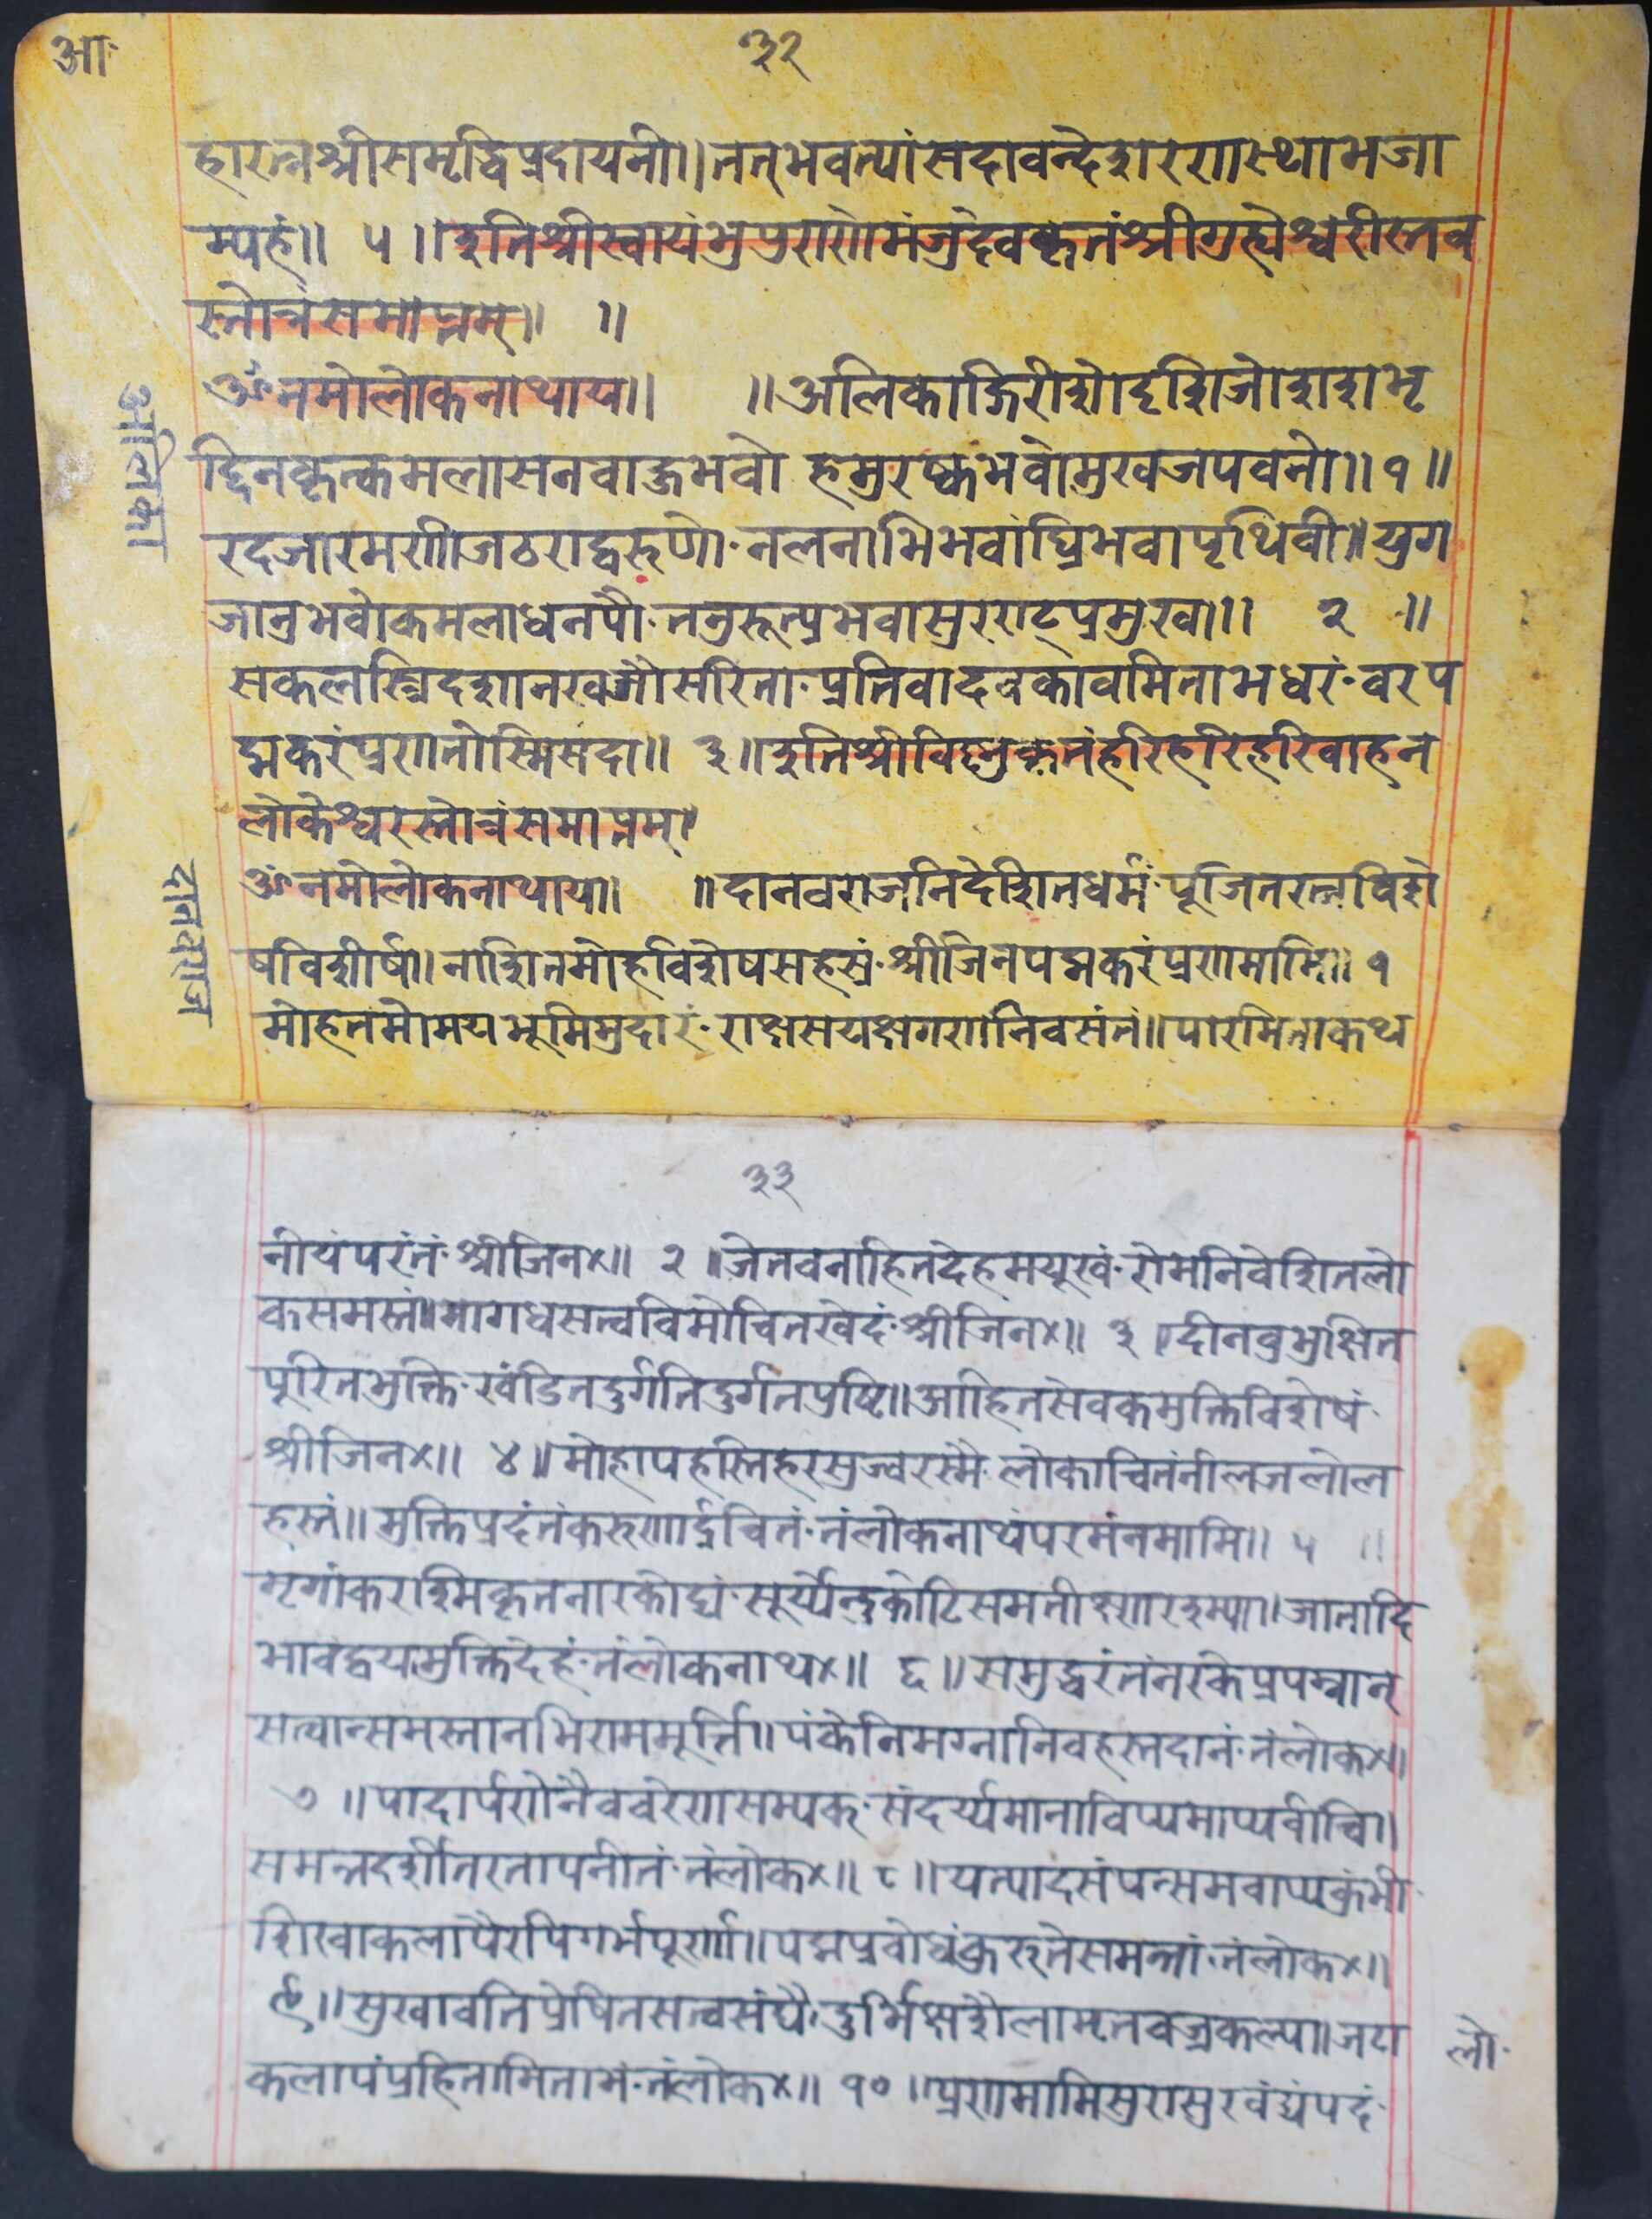 आ·
३२
हारत्नश्रीसमृद्धिप्रदायनी॥तत्भवत्पांसदावन्देशरणस्थाभजा
म्यहं॥ ५ ॥इतिश्रीस्वायंभुपुराणेमंजुदेवकृतंश्रीगुह्येश्वरीस्तव
स्तोत्रंसमाप्तम्॥ ॥
ॐनमोलोकनाथाय॥ ॥अलिकाङ्गिरीशोदृशिजोशशभृ
द्दिनकृत्कमलासनवाङ्गभवो हृमुरष्कभवोमुखजपवनो॥१॥
रदजारमणीजठराद्वरुणो·नलनाभिभवांघ्रिभवापृथिवी॥युग
जानुभवोकमलाधनपौ·तनुरुत्प्रभवासुरराट्प्रमुखा॥ २ ॥
सकलस्त्रिदशानखगौसरिता·प्रतिवादवकावमिताभधरं·वरप
द्मकरंप्रणतोस्मिसदा॥ ३॥इतिश्रीविष्णुकृतंहरिहरिहरिवाहन
लोकेश्वरस्तोत्रंसमाप्तम्॥
ॐनमोलोकनाथाय॥ ॥दानवराजनिदेशितधर्मं·पूजितरत्नविशे
षविशीर्षं॥नाशितमोहविशेषसहस्रं·श्रीजिनपद्मकरंप्रणमामि॥१
मोहतमोमयभूमिमुदारं·राक्षसयक्षगणानिवसंतं॥पारमिताकथ
अलिका
दानवराज
३३
नीयंपरंतं·श्रीजिन४॥ २ ॥जेतवनाहितदेहमयूखं·रोमनिवेशितलो
कसमस्तं॥मागधसत्वविमोचितखेदं·श्रीजिन४॥ ३ ॥दीनबुभुक्षित
पूरितभुक्ति·खंडितदुर्गतिदुर्गतपुष्टि॥आहितसेवकमुक्तिविशेषं·
श्रीजिन४॥ ४॥मोहापहस्तिहरसुज्वरस्मै·लोकाचितंनीलजलोल
हस्तं॥मुक्तिप्रदंतंकरुणार्द्रचितं·तंलोकनाथंपरमंनमामि॥ ५ ॥
मृगांकरश्मिकृतनारकोद्यं·सूर्य्येन्दुकोटिसमतीक्ष्णरश्म्या॥जातादि
भावंद्वयमुक्तिदेहं·तंलोकनाथ४॥ ६॥समुद्धरंतंनरकेप्रपन्नान्
सत्वान्समस्तानभिराममूर्त्ति॥पंकेनिमग्नानिवहस्तदानं·तंलोक४॥
७ ॥पादार्पणेनैववरेणसम्यक्·संदर्य्यमानाविप्यमाप्यर्वाचि॥
समन्तदर्शीतरतापनीतं·तंलोक४॥ ८॥यत्पादसंपत्समवाप्यकुंभी·
शिखाकलापैरपिगर्भपूर्णां॥पद्मप्रबोधंकुरुतेसमन्तां·तंलोक४॥
९॥सुखावतिप्रेषितसत्वसंघै·दुर्भिक्षशैलामृतवज्रकल्प॥जटा
कलापंप्रहितामिताभं·तंलोक४॥ १०॥प्रणमामिसुरासुरवंद्यंपदं·
लो·